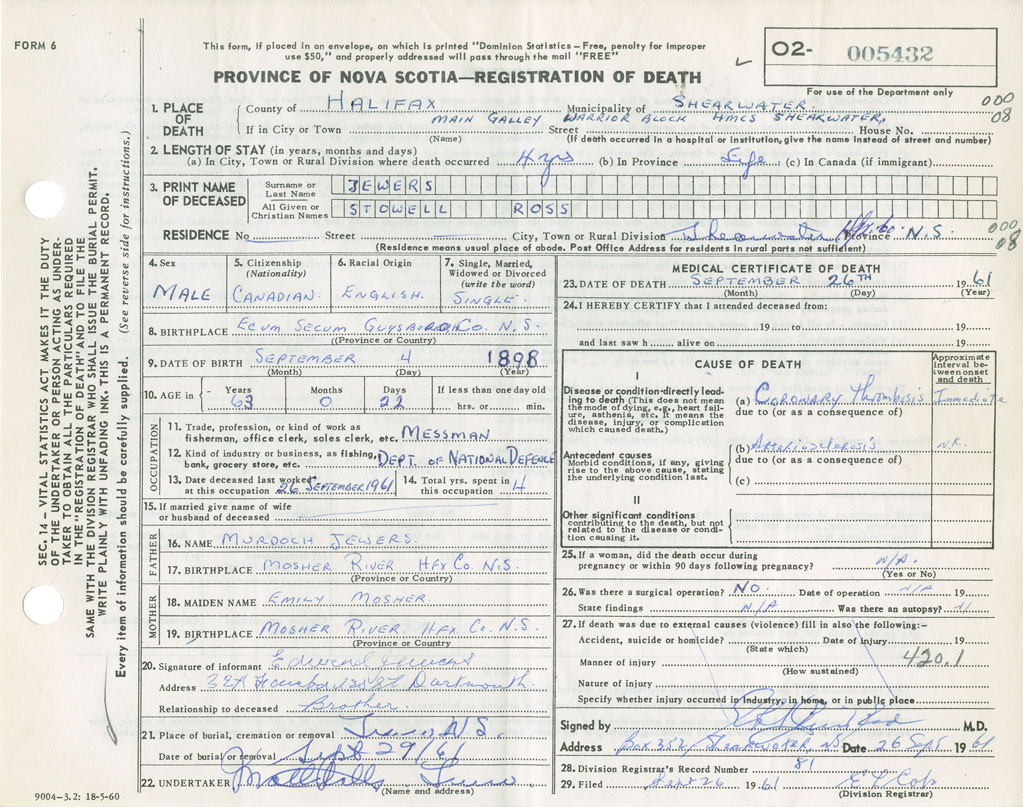 FORM 6
This form, if placed in an envelope, on which is printed "Dominion Statistics – Free, penalty for improper
use $50," and properly addressed will pass through the mail "FREE"
02- 005432
For use of the Department only
PROVINCE OF NOVA SCOTIA—REGISTRATION OF DEATH
1. PLACE OF DEATH
County of HALIFAX Municipality of SHEARWATER. 000
MAIN GALLEY WARRIOR BLOCK HMCS SHEARWATER, 08
If in City or Town Street House No.
(Name) (If death occurred in a hospital or institution, give the name instead of street and number)
2. LENGTH OF STAY (in years, months and days)
(a) In City, Town or Rural Division where death occurred 4 yrs (b) In Province Life (c) In Canada (if immigrant)
3. PRINT NAME OF DECEASED
Surname or Last Name JEWERS
All Given or Christian Names STOWELL ROSS
RESIDENCE No Street City, Town or Rural Division Shearwater Province N.S. 000
08
(Residence means usual place of abode. Post Office Address for residents in rural parts not sufficient)
4. Sex MALE
5. Citizenship (Nationality) CANADIAN.
6. Racial Origin ENGLISH.
7. Single, Married, Widowed or Divorced (write the word) SINGLE.
8. BIRTHPLACE ECUM SECUM GUYSBORO Co. N.S.
(Province or Country)
9. DATE OF BIRTH SEPTEMBER 4 1898
(Month) (Day) (Year)
10. AGE in Years 63 Months 0 Days 22 If less than one day old hrs. or min.
OCCUPATION
11. Trade, profession, or kind of work as
fisherman, office clerk, sales clerk, etc. MESSMAN
12. Kind of industry or business, as fishing,
bank, grocery store, etc. DEPT. OF NATIONAL DEFENCE
13. Date deceased last worked
at this occupation 26 SEPTEMBER 1961
14. Total yrs. spent in
this occupation 4
15. If married give name of wife
or husband of deceased
FATHER
16. NAME MURDOCH JEWERS.
17. BIRTHPLACE MOSHER RIVER HFX Co. N.S.
(Province or Country)
MOTHER
18. MAIDEN NAME EMILY MOSHER.
19. BIRTHPLACE MOSHER RIVER. HFX. Co. N.S.
(Province or Country)
20. Signature of informant Edward Jewers
Address Dartmouth.
Relationship to deceased Brother.
21. Place of burial, cremation or removal Truro N.S.
Date of burial or removal Sept 29/61
22. UNDERTAKER Truro
(Name and address)
9004-3.2: 18-5-60
MEDICAL CERTIFICATE OF DEATH
23. DATE OF DEATH SEPTEMBER 26TH 1961
(Month) (Day) (Year)
24. I HEREBY CERTIFY that I attended deceased from:
19 to 19
and last saw h alive on 19
CAUSE OF DEATH
Approximate interval between onset and death
I
Disease or condition directly leading to death (This does not mean the mode of dying, e.g., heart failure, asthenia, etc. It means the disease, injury, or complication which caused death.)
(a) Coronary Thrombosis Immediate
due to (or as a consequence of)
Antecedent causes
Morbid conditions, if any, giving rise to the above cause, stating the underlying condition last.
(b) Arteriosclerosis N.K.
due to (or as a consequence of)
(c)
II
Other significant conditions
contributing to the death, but not related to the disease or condition causing it.
25. If a woman, did the death occur during
pregnancy or within 90 days following pregnancy? N/A.
(Yes or No)
26. Was there a surgical operation? NO. Date of operation N/A 19
State findings N/A Was there an autopsy?
27. If death was due to external causes (violence) fill in also the following:-
Accident, suicide or homicide? Date of injury 19
(State which)
420.1
Manner of injury
(How sustained)
Nature of injury
Specify whether injury occurred in industry, in home, or in public place
Signed by M.D.
Address Box 352, Shearwater, NS Date 26 Sept 1961
28. Division Registrar's Record Number 81
29. Filed Sept 26 1961
(Division Registrar)
SEC. 14 – VITAL STATISTICS ACT MAKES IT THE DUTY
OF THE UNDERTAKER OR PERSON ACTING AS UNDER-
TAKER TO OBTAIN ALL THE PARTICULARS REQUIRED
IN THE "REGISTRATION OF DEATH" AND TO FILE THE
SAME WITH THE DIVISION REGISTRAR WHO SHALL ISSUE THE BURIAL PERMIT.
WRITE PLAINLY WITH UNFADING INK. THIS IS A PERMANENT RECORD.
Every item of information should be carefully supplied. (See reverse side for instructions.)